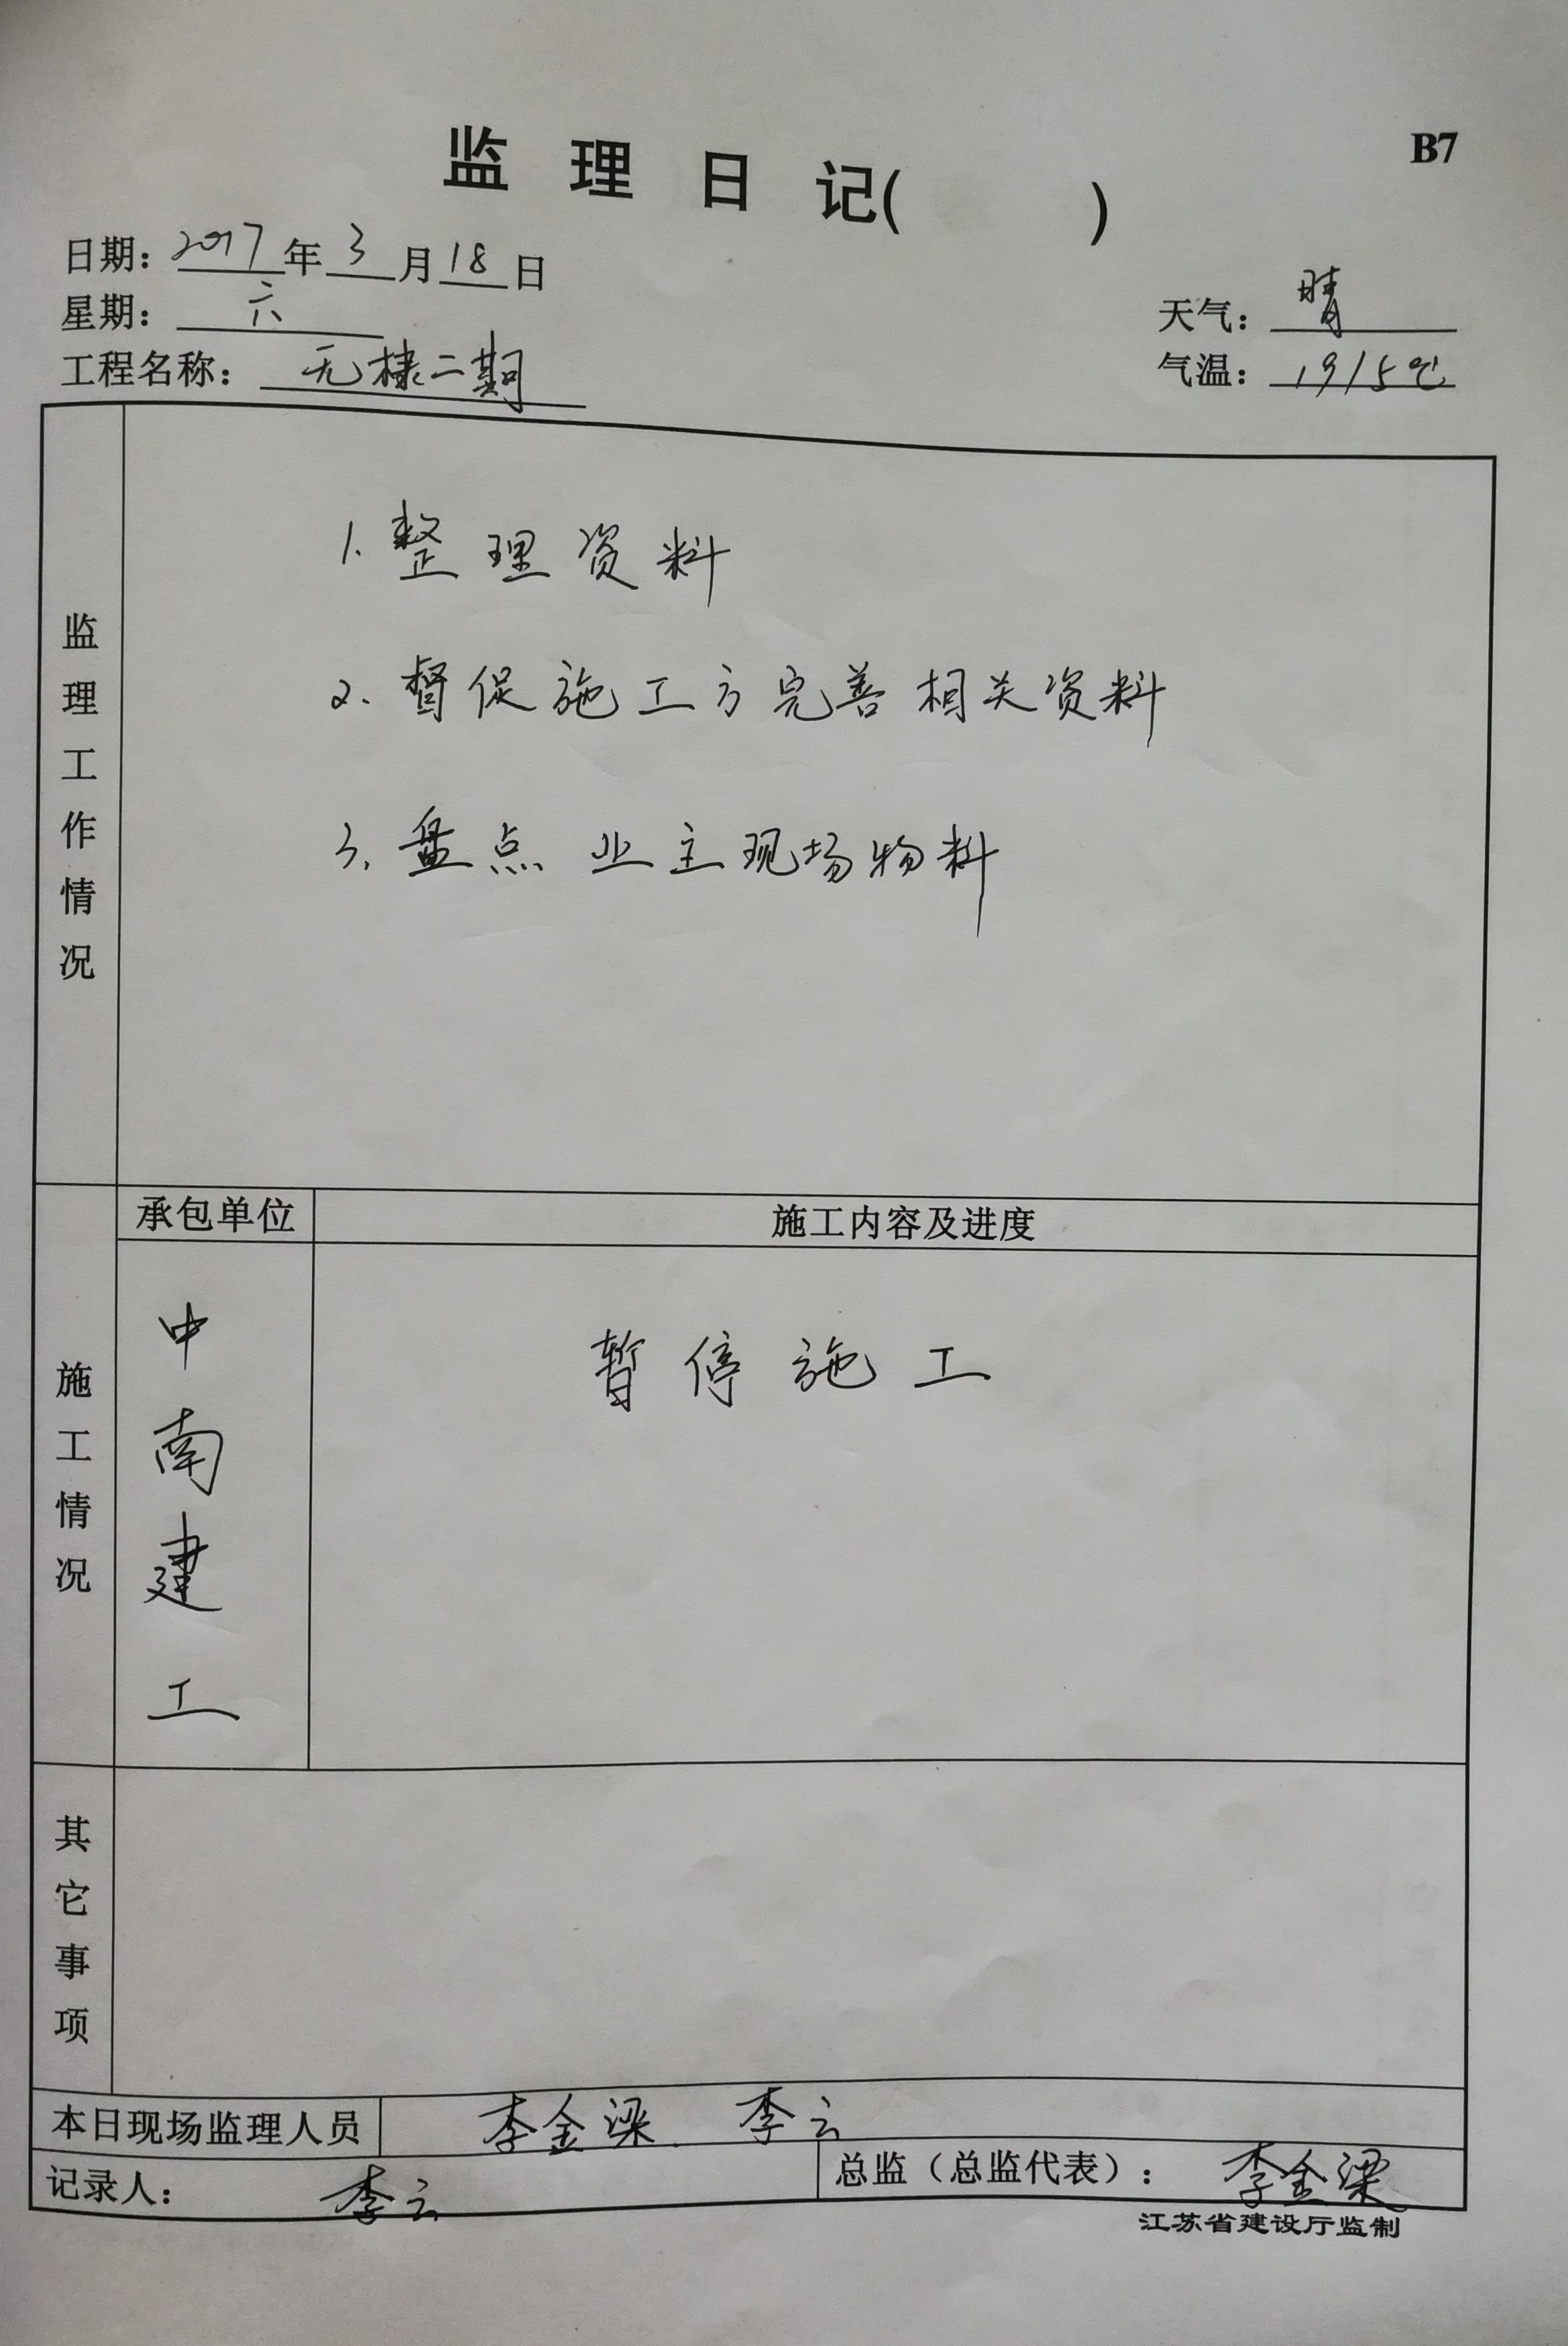 B7
监理日记( )
日期：2017年3月18日
星期：六
天气：晴
工程名称：无棣二期
气温：19/5℃
监理工作情况
1.整理资料
2.督促施工方完善相关资料
3.盘点业主现场物料
施工情况
承包单位 施工内容及进度
中南建工
暂停施工
其它事项
本日现场监理人员 李金梁、李云
记录人：李云 总监（总监代表）：李金梁
江苏省建设厅监制